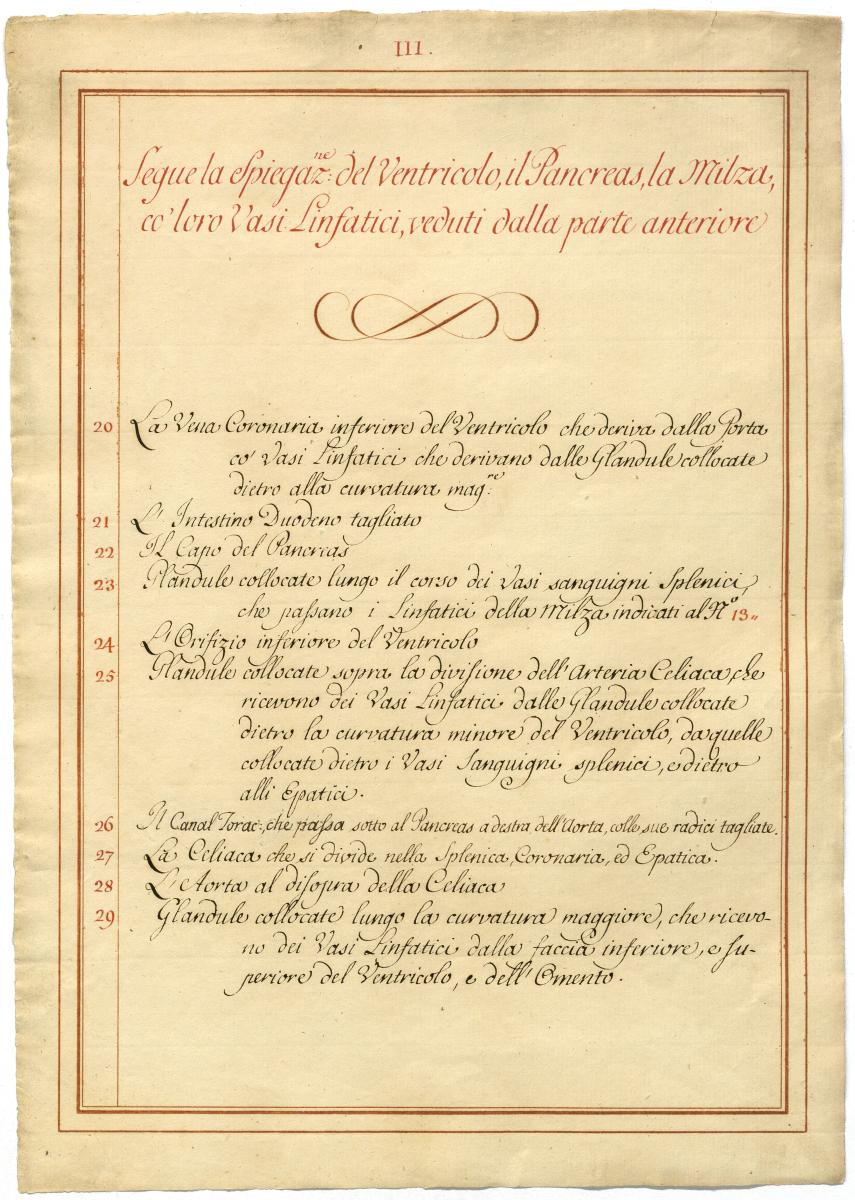 III.
Segue la Spiegaz.ne: del Ventricolo, il Pancreas, la Milza,
co' loro Vasi Linfatici, veduti dalla parte anteriore
20 La Vena Coronaria inferiore del Ventricolo che deriva dalla Porta
co' Vasi Linfatici che derivano dalle Glandule collocate
dietro alla curvatura mag.re
21 L' Intestino Duodeno tagliato
22 Il Capo del Pancreas
23 Glandule collocate lungo il corso dei Vasi sanguigni Splenici,
che passano i Linfatici della Milza indicati al N.o 13„
24 L'Orifizio inferiore del Ventricolo
25 Glandule collocate sopra la divisione dell'Arteria Celiaca, che
ricevono dei Vasi Linfatici dalle Glandule collocate
dietro la curvatura minore del Ventricolo, da quelle
collocate dietro i Vasi Sanguigni splenici, e dietro
alli Epatici.
26 Il Canal Torac:, che passa sotto al Pancreas a destra dell'Aorta, colle sue radici tagliate.
27 La Celiaca che si divide nella Splenica, Coronaria, ed Epatica.
28 L'Aorta al disopra della Celiaca
29 Glandule collocate lungo la curvatura maggiore, che ricevo-
no dei Vasi Linfatici dalla faccia inferiore, e su-
periore del Ventricolo, e dell' Omento.